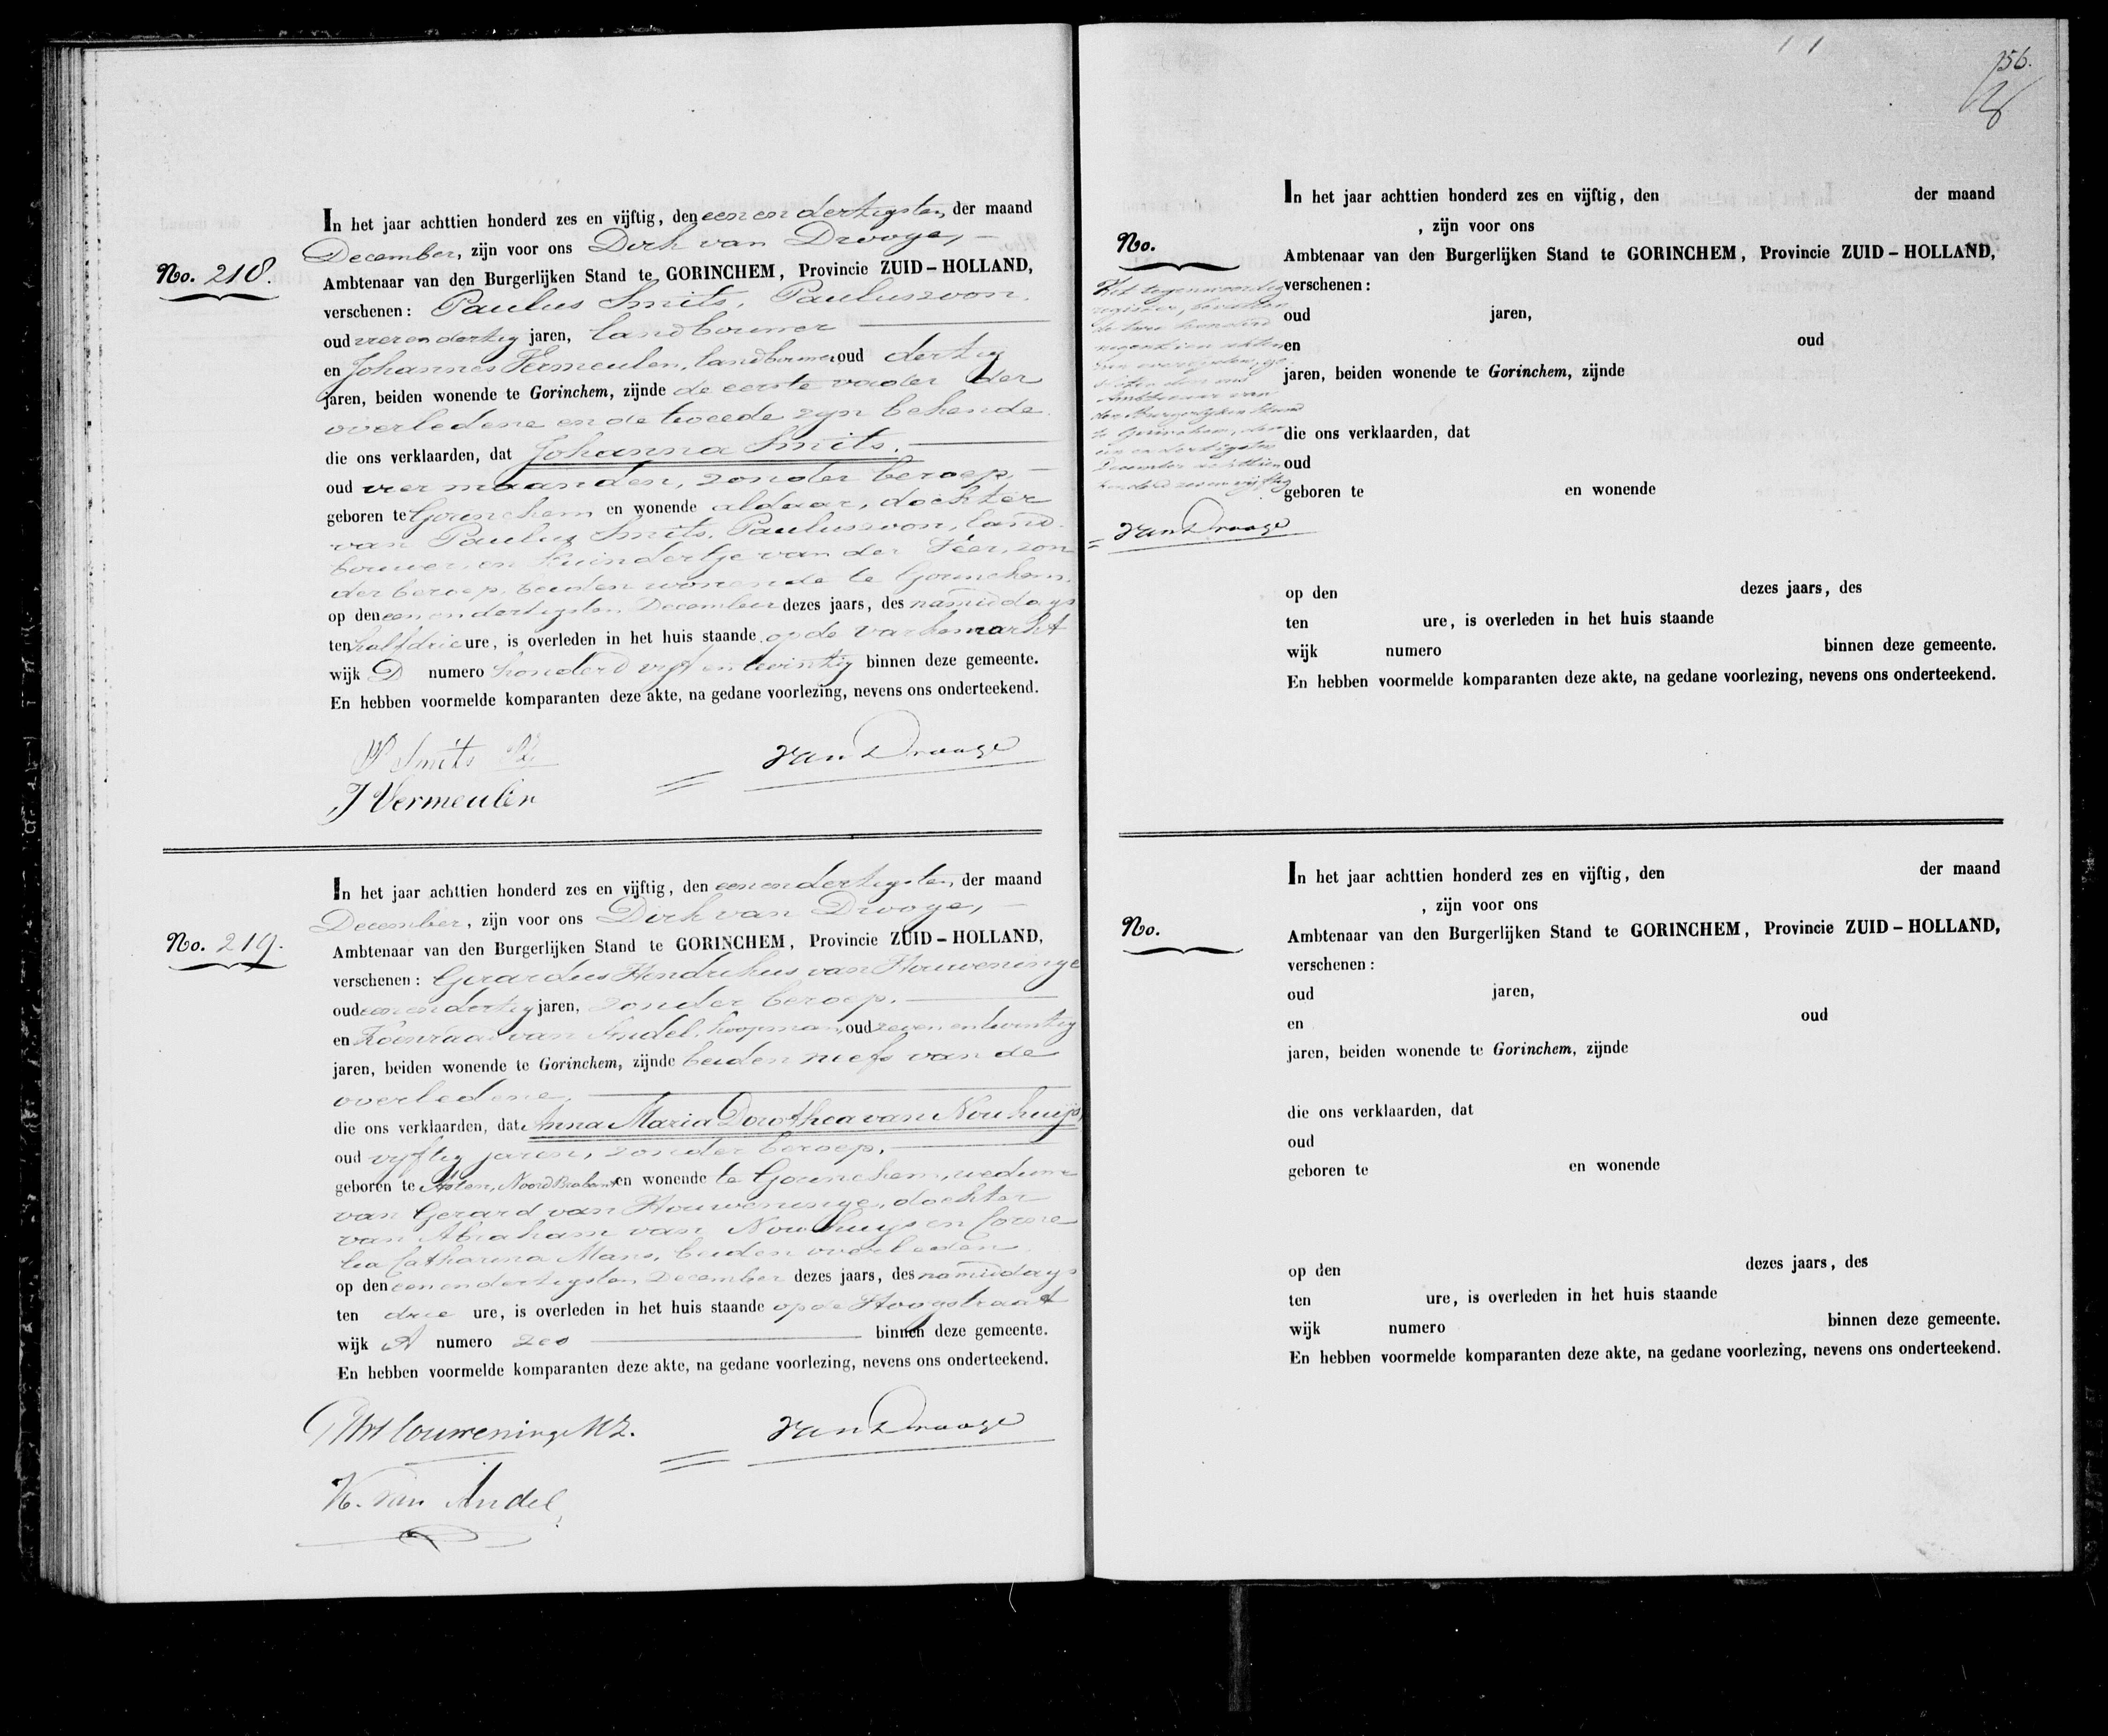 No. 218.
In het jaar achttien honderd zes en vijftig, den een en dertigsten der maand
December, zijn voor ons Dirk van Drooge,
Ambtenaar van den Burgerlijken Stand te GORINCHEM, Provincie ZUID-HOLLAND,
verschenen: Paulus Smits, Pauluszoon,
oud vier en dertig jaren, landbouwer
en Johannes Vermeulen, landbouwer oud dertig
jaren, beiden wonende te Gorinchem, zijnde de eerste vader der
overledene en de tweede zyn bekende
die ons verklaarden, dat Johanna Smits.
oud vier maanden, zonder beroep,
geboren te Gorinchem en wonende aldaar, dochter
van Paulus Smits, Pauluszoon, land-
bouwer, en van der Veer, zon
der beroep, beiden wonende te Gorinchem.
op den een en dertigsten December dezes jaars, des namiddags
ten half drie ure, is overleden in het huis staande op de varkenmarkt
wijk D numero honderd vyf en twintig binnen deze gemeente.
En hebben voormelde komparanten deze akte, na gedane voorlezing, nevens ons onderteekend.
P Smits Pz
van Drooge
J Vermeulen
No. 219.
In het jaar achttien honderd zes en vijftig, den een en dertigsten der maand
December, zijn voor ons Dirk van Drooge,
Ambtenaar van den Burgerlijken Stand te GORINCHEM, Provincie ZUID-HOLLAND,
verschenen: Gerardus Hendrikus van Houweninge
oud een en dertig jaren, zonder beroep.
en Koenraad van Andel, koopman, oud zeven en twintig
jaren, beiden wonende te Gorinchem, zijnde beiden neefs van de
overledene,
die ons verklaarden, dat Anna Maria Dorothea van Nouhuijs,
oud vyftig jaren, zonder beroep,
geboren te Asten, Noord Brabant en wonende te Gorinchem, weduwe
van Gerard van Houweninge, dochter
van Abraham van Nouhuys en Corne
lia Catharina Mans, beiden overleden
op den een en dertigsten December dezes jaars, des namiddags
ten drie ure, is overleden in het huis staande op de Hoogstraat
wijk A numero zes binnen deze gemeente.
En hebben voormelde komparanten deze akte, na gedane voorlezing, nevens ons onderteekend.
van Drooge
K. van Andel
156.
No.
In het jaar achttien honderd zes en vijftig, den der maand
, zijn voor ons
Ambtenaar van den Burgerlijken Stand te GORINCHEM, Provincie ZUID-HOLLAND,
verschenen:
oud jaren,
en oud
jaren, beiden wonende te Gorinchem, zijnde
die ons verklaarden, dat
oud
geboren te en wonende
op den dezes jaars, des
ten ure, is overleden in het huis staande
wijk numero binnen deze gemeente.
En hebben voormelde komparanten deze akte, na gedane voorlezing, nevens ons onderteekend.
Het tegenwoordig
register, bevattende
twee honderd
negentien akten
van overlijden, ge-
sloten door ons
Ambtenaar van
den Burgerlijken Stand
te Gorinchem, den
een en dertigsten
December achttien
honderd zes en vijftig
van Drooge
No.
In het jaar achttien honderd zes en vijftig, den der maand
, zijn voor ons
Ambtenaar van den Burgerlijken Stand te GORINCHEM, Provincie ZUID-HOLLAND,
verschenen:
oud jaren,
en oud
jaren, beiden wonende te Gorinchem, zijnde
die ons verklaarden, dat
oud
geboren te en wonende
op den dezes jaars, des
ten ure, is overleden in het huis staande
wijk numero binnen deze gemeente.
En hebben voormelde komparanten deze akte, na gedane voorlezing, nevens ons onderteekend.